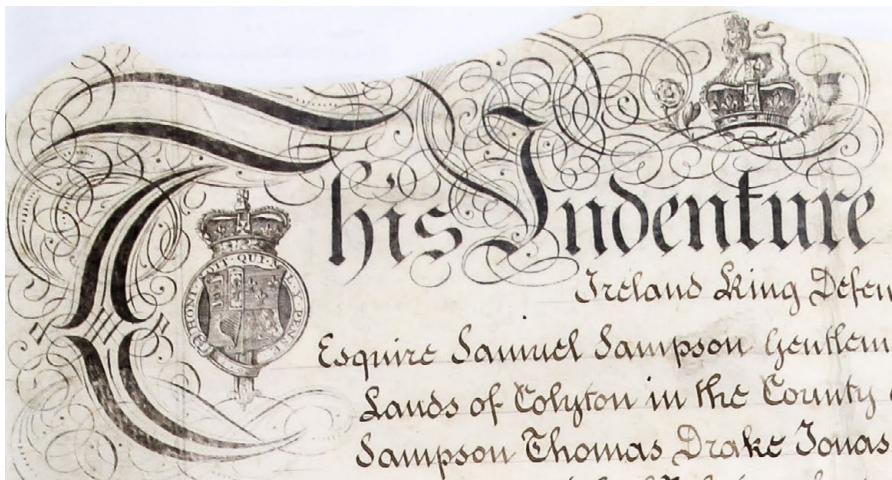 This Indenture
HONI SOIT QUI
Ireland King Defen
Esquire Samuel Sampson Gentlem
Lands of Colyton in the County
Sampson Thomas Drake Jonas